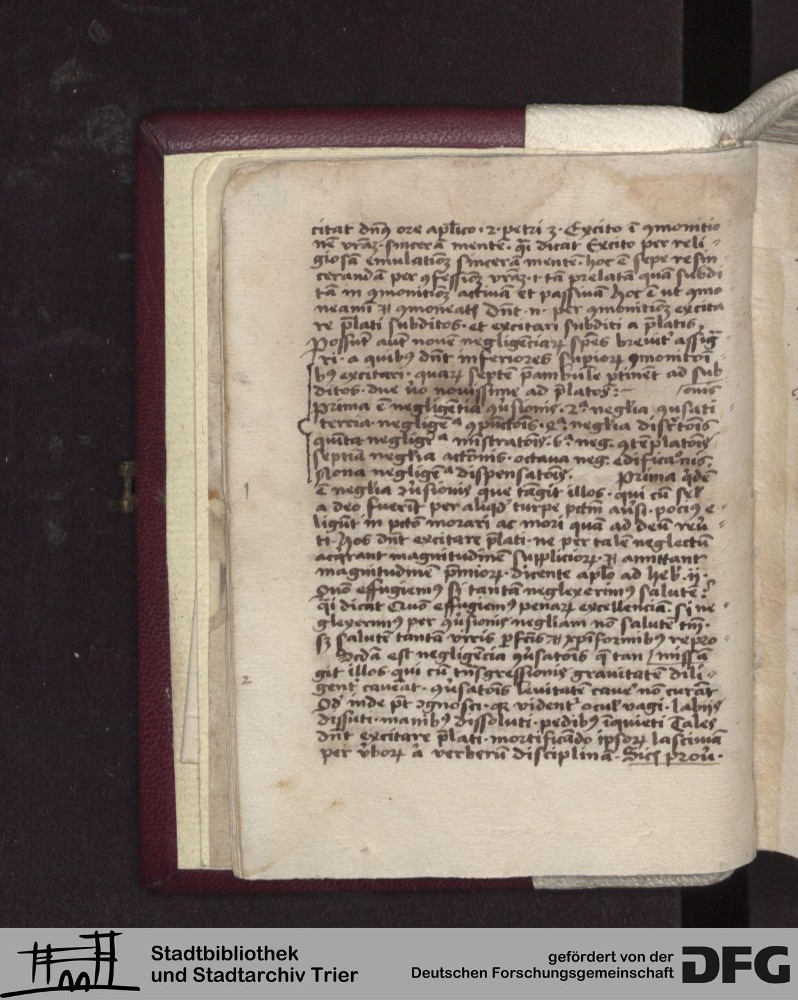 citat dn̄s ore apl̄ico · 2 · petri 3 · Excito ī ꝯmonitio
nē vr̄aʒ · sincerā mentē · q̄i dicat Excito per reli
giosā emulationeʒ sincerā mentē · hoc ē sepe resin
cerandā per ꝯfessionē vr̄aʒ · tā prelatā quā subdi
tā in ꝯmonitioʒ actiuā et passiuā hoc ē ut ꝯmo
neamī ⁊ ꝯmoneatis dn̄t · n · per ꝯmonitionē excita
re p̄lati subditos · et excitari subditi a p̄latis ·
Possūt aut̄ nouē negligēciaꝝ sp̄es breuit̄ assig
ri · a quibꝰ dn̄t inferiores supioꝝ ꝯmonitōi
bꝰ excitari · quaꝝ septē p̄ambule p̄tinēt ad sub
ditos · due v̄o nouissime ad p̄latos :
Prima ē negligētia ꝯūsionis · 2ᵃ neglīa ꝯūsati onis
tercia negligēᵃ ꝯpūctōis · 4ᵃ neglīa discr̄tōis
quīta negligeᵃ mīstratōis · 6ᵃ neg · ꝯtēplatōis
septīa neglīa actōnis · octaua neg · edificaōnis ·
Nona negligēᵃ dispensatōis · Prima q̄dē
1 ē neglīa ꝯūsionis que tāgit illos · qui cū sel̄
a deo fuerīt per aliqd turpe pctm̄ auīsi · pociꝰ e
ligūt in pctō morari ac mori quā ad deū reu̅
ti · hos dn̄t excitare p̄lati · ne per talē neglectū
acq̄rant magnitudinē suppliciorꝝ · ⁊ amittant
magnitudinē p̄mioꝝ · dicente apl̄o ad heb · ij ·
Quō effugiemꝰ si tantā neglexerimꝰ salutē ?
q̄i dicat Quō effugiemꝰ penaꝝ excellenciā · si ne
glexerimꝰ per ꝯūsionis negliam nō salutē tm̄ ·
sʒ salutē tantā viris ꝑfcīs ⁊ xpīformibꝰ repro
2 Scdā est negligēcia ꝯūsatōis q̄ tan missā
git illos · qui cū tn̄sgressionis grauitatē dili
gent̄ caueāt · ꝯūsatōis leuitatē caue nō curāt
Qd̄ inde pt̄ ꝯgnosci · qꝛ vident̄ ocul̄ vagi · labijs
dissuti · manibꝰ dissoluti · pedibꝰ īquieti Tales
dn̄t excitare p̄lati · mortificādo ipsoꝝ lasciuiā
per v̄boꝝ a verberū disciplinā · Sicꝫ prou̅ ·
Stadtbibliothek
und Stadtarchiv Trier
gefördert von der
Deutschen Forschungsgemeinschaft
DFG